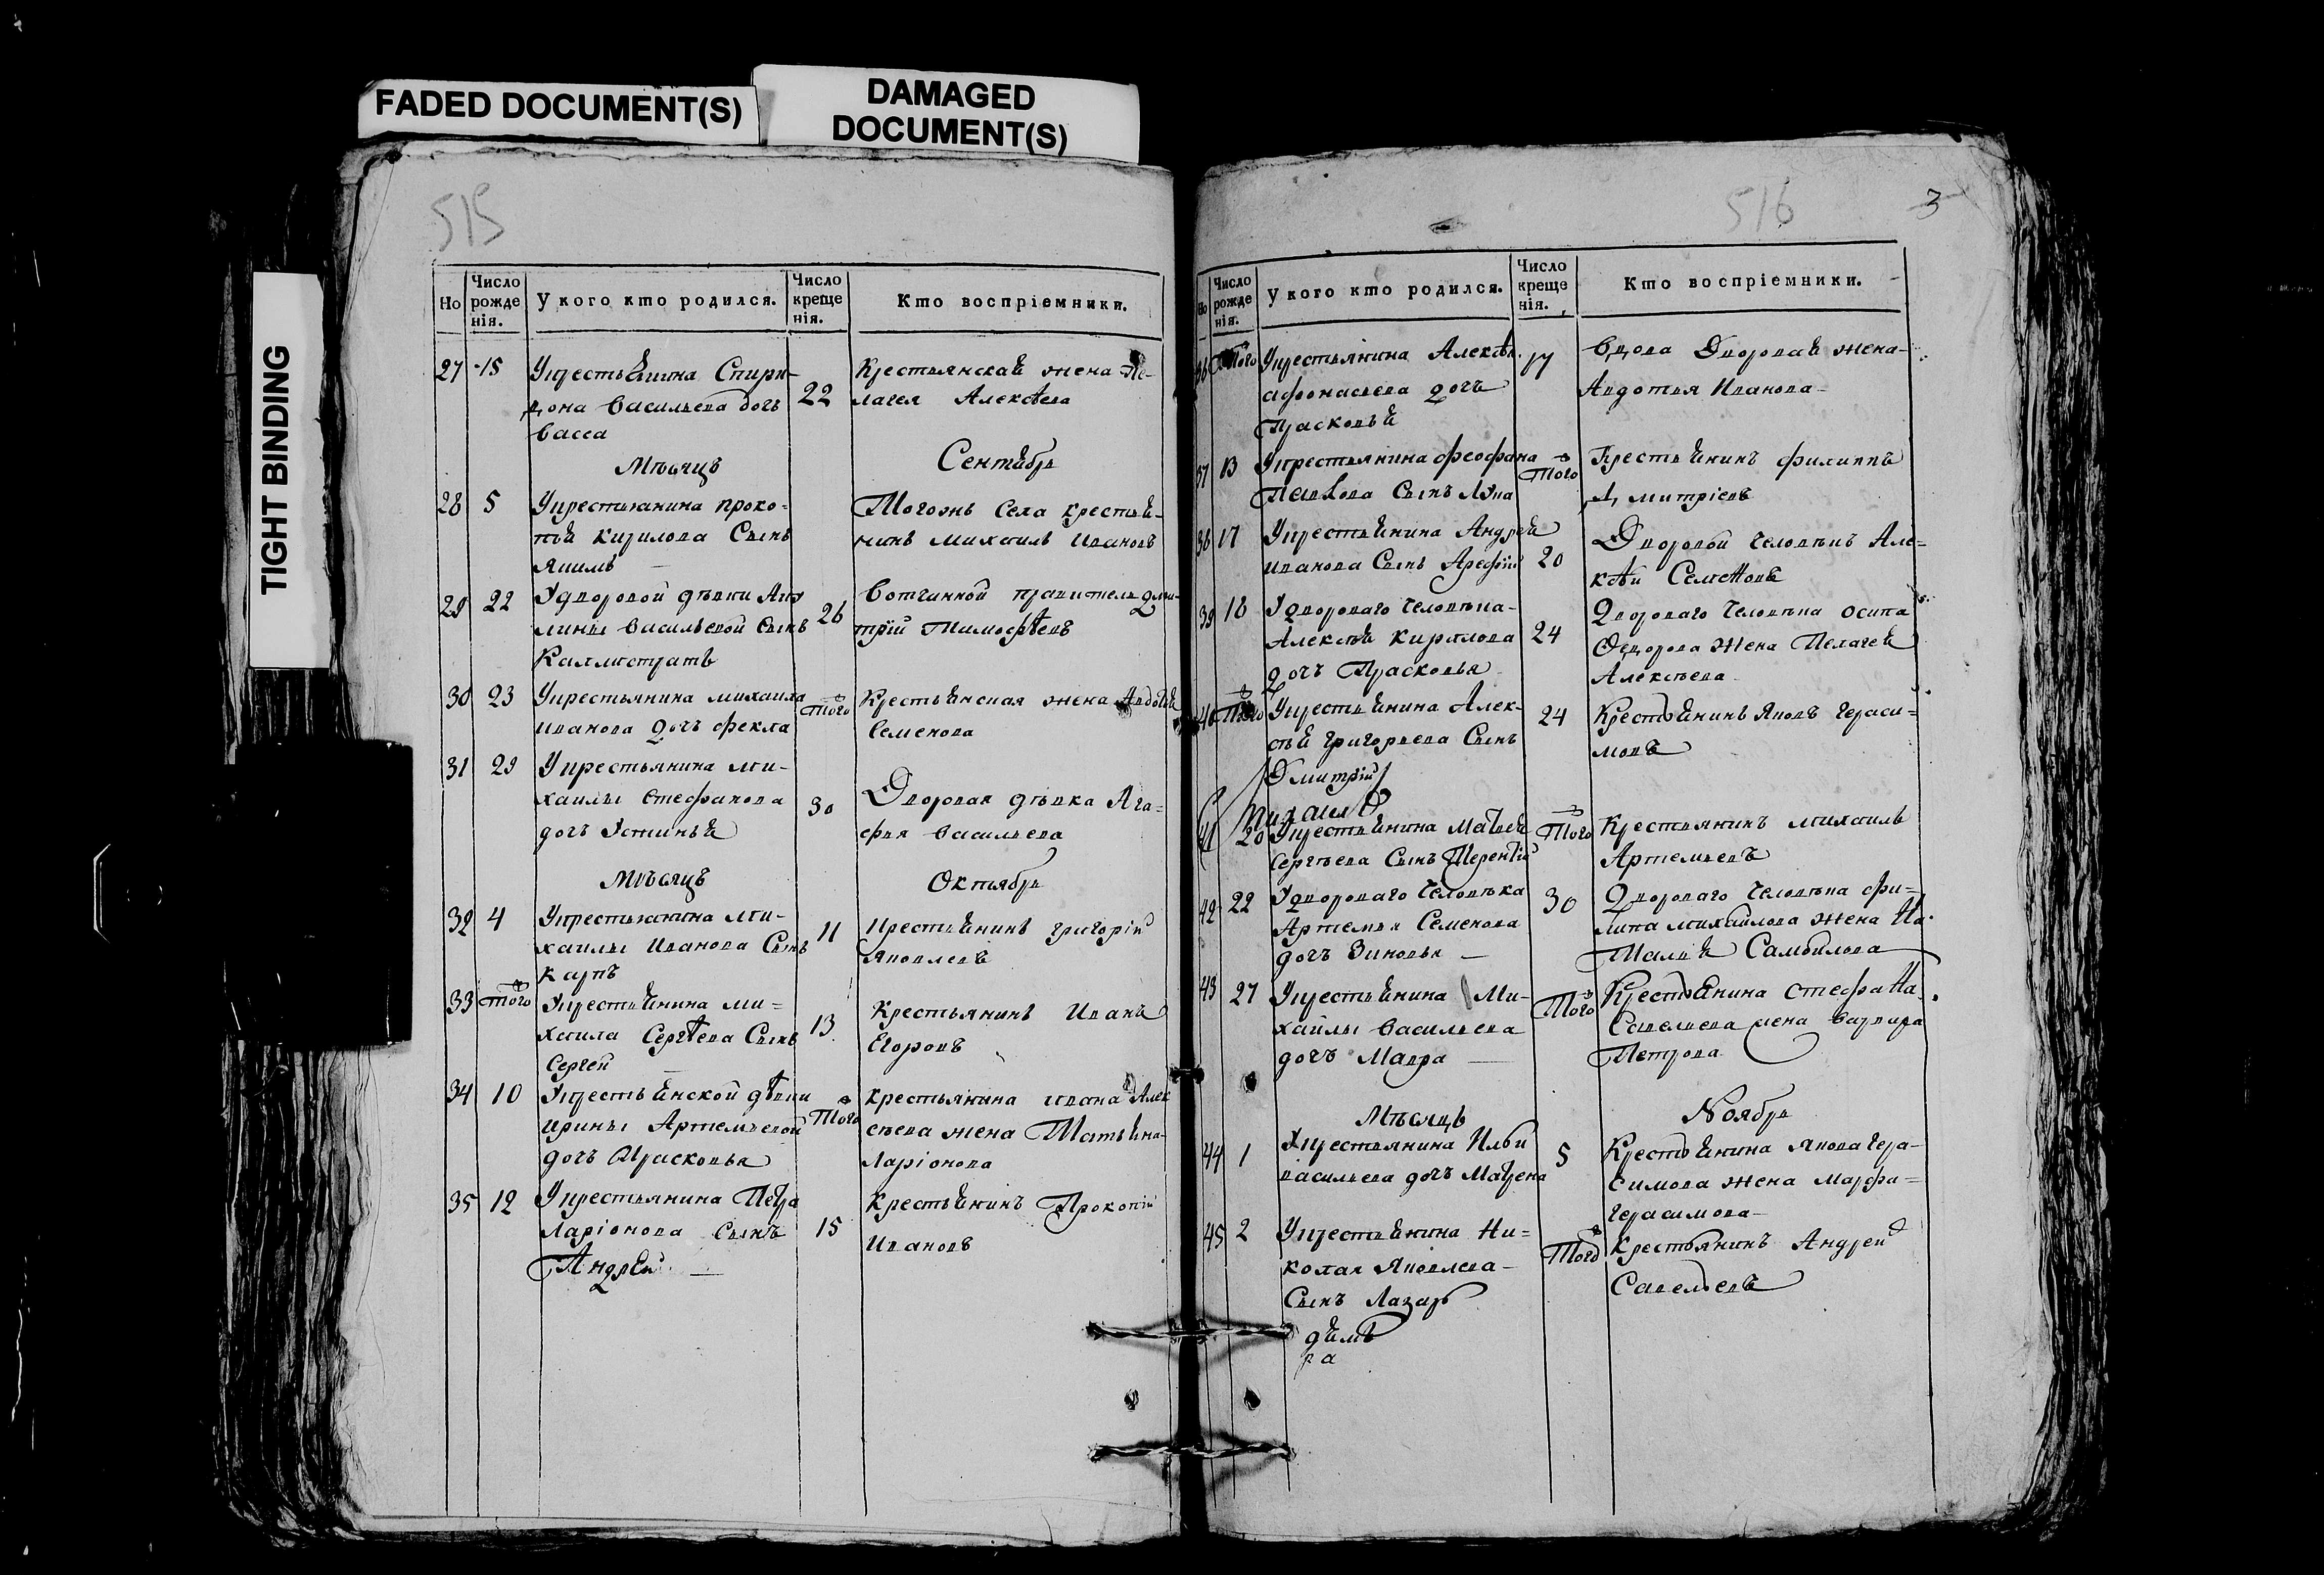 FADED DOCUMENT(S)
DAMAGED
DOCUMENT(S)
TIGHT BINDING
515
Но
Число
рожде
нія.
У кого кто родился.
Число
креще
нія.
Кто воспріемники.
27 15 Укрестьянина Спири-
дона Васильева дочь
Васса
22
Крестьянская жена Пе-
лагея Алексѣева
Мѣсяцъ Сентябрь
28 5 Укрестьянина Проко-
пья Кирилова Сынъ
Якимъ
Тогожъ Села крестья-
нинъ Михаилъ Ивановъ
29 22 Удворовой дѣвки Аку
лины Васильевой Сынъ
Каллистратъ
26
Вотчинной правитель дми-
трій Тимофѣевъ
30 23 Укрестьянина михаила
Иванова дочь фекла
того
Крестьянская жена Авдотья
Семенова
31 29 Укрестьянина ми-
хаилы Стефанова
дочь Устинья
30
Дворовая дѣвка Ага-
фья Васильева
Мѣсяцъ Октябрь
32 4 Укрестьянина ми-
хаилы Иванова Сынъ
Карпъ
11
Крестьянинъ григорій
Яковлевъ
33 того Укрестьянина ми-
хаила Сергѣева Сынъ
Сергей
13
Крестьянинъ Иванъ
Егоровъ
34 10 Укрестьянской дѣвки
Ирины Артемьевой
дочь Прасковья
Того
крестьянина ивана Алек
сѣева жена Татьяна
Ларіонова
35 12 Укрестьянина Петра
Ларіонова Сынъ
Андрей
15
крестьянинъ Прокопій
Ивановъ
516
3
Но
Число
рожде
нія.
У кого кто родился.
Число
креще
нія.
Кто воспріемники.
36 Того Укрестьянина Алексѣя
афонасьева дочь
Прасковья
17
Вдова Дворовая жена
Авдотья Иванова
37 13 Укрестьянина феофана
Павлова Сынъ Лука
Того
Крестьянинъ филиппъ
Дмитріевъ
38 17 Укрестьянина Андрея
Иванова Сынъ Арефій
20
Дворовой Человѣкъ Але-
ксѣй Семеновъ
39 18 Удвороваго Человѣка
Алексѣя Кирилова
дочь Прасковья
24
Двороваго Человѣка осипа
Федорова Жена Пелагея
Алексѣева
40 Того Укрестьянина Алек-
сѣя григорьева Сынъ
Дмитрій
24
Крестьянинъ Яковъ Гераси-
мовъ
Михаилъ
41 20 Укрестьянина Матвея
Сергѣева Сынъ Терентій
Того
Крестьянинъ михаилъ
Артемьевъ
42 22 Удвороваго Человѣка
Артемья Семенова
дочь Зиновья
30
Двороваго Человѣка фи-
липа михайлова жена На
Талья Самойлова
43 27 Укрестьянина Ми-
хайлы Васильева
дочь Мавра
Того
Крестьянина Стефана
Савельева жена Варвара
Петрова
Мѣсяцъ Ноябрь
44 1 Укрестьянина Ильи
васильева дочь Матрена
5
Крестьянина Якова Гера-
симова жена Марфа
Герасимова
45 2 Укрестьянина Ни-
колая Яковлева
Сынъ Лазарь
Того
Крестьянинъ Андрей
Савельевъ